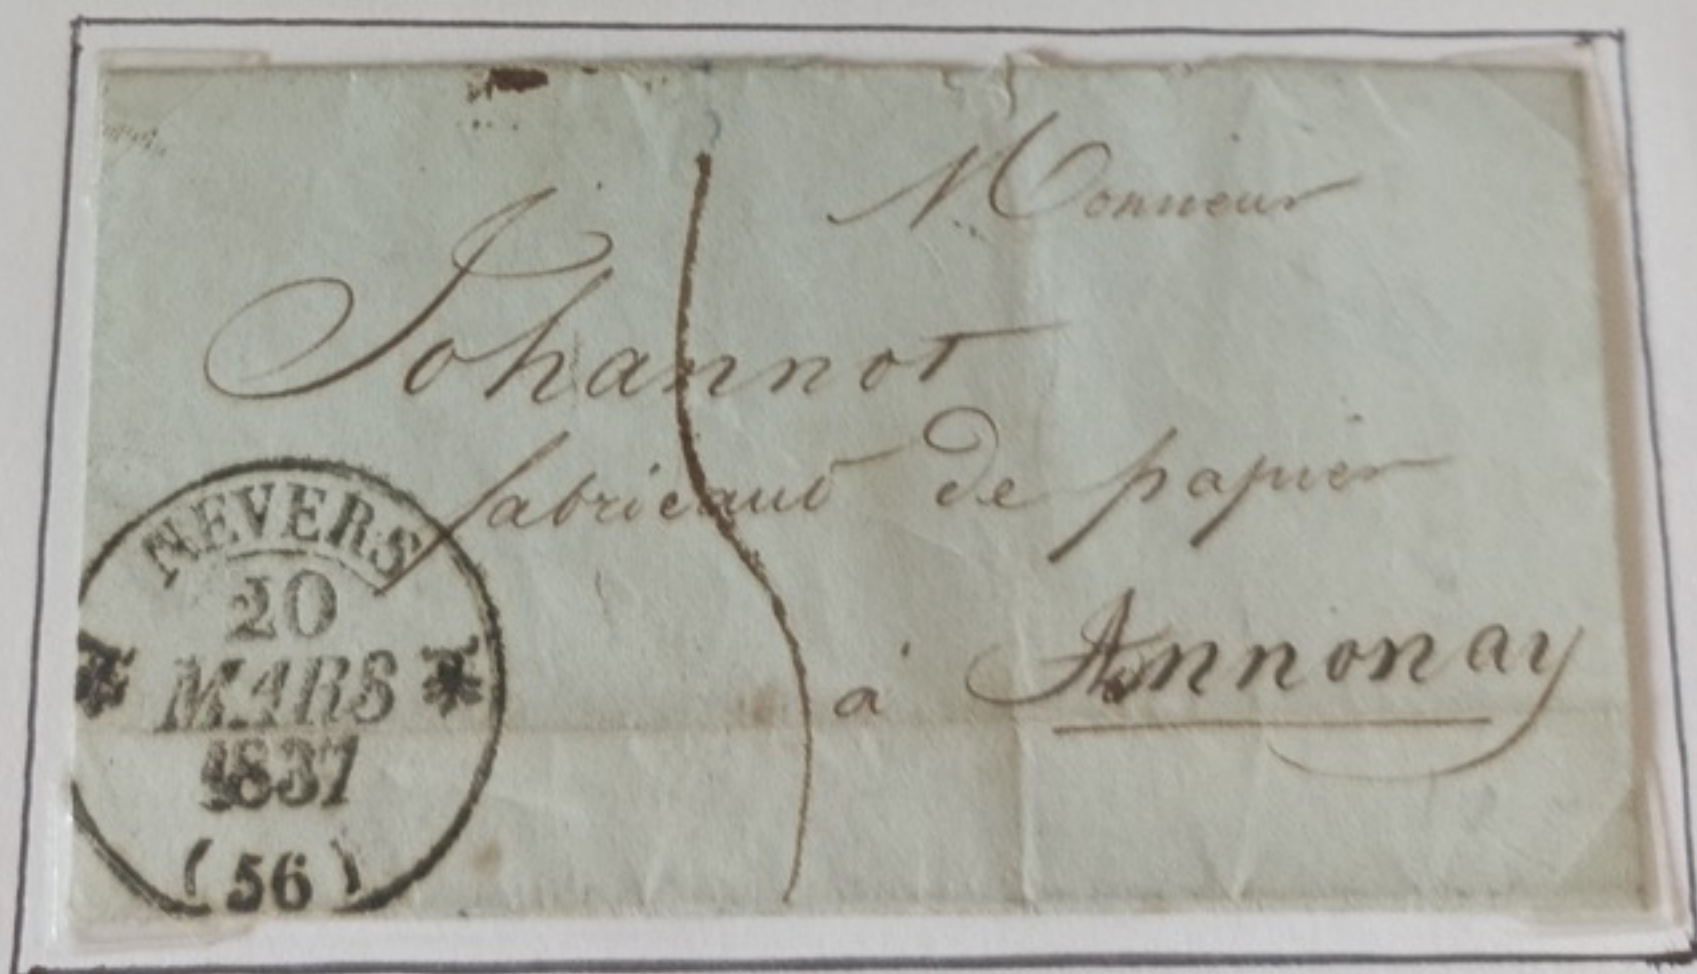 Monsieur
Johannot
fabricant de papier
à Annonay
NEVERS
20
MARS
1837
(56)